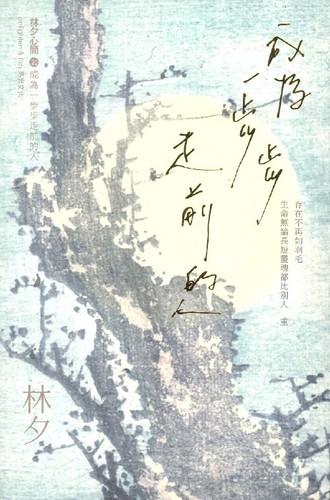 成為
一步步
走前的人
存在不再如羽毛
生命無論長短靈魂都比別人 重
林夕心簡 成為一步步走前的人
enlighten & fish 亮光文化
林夕